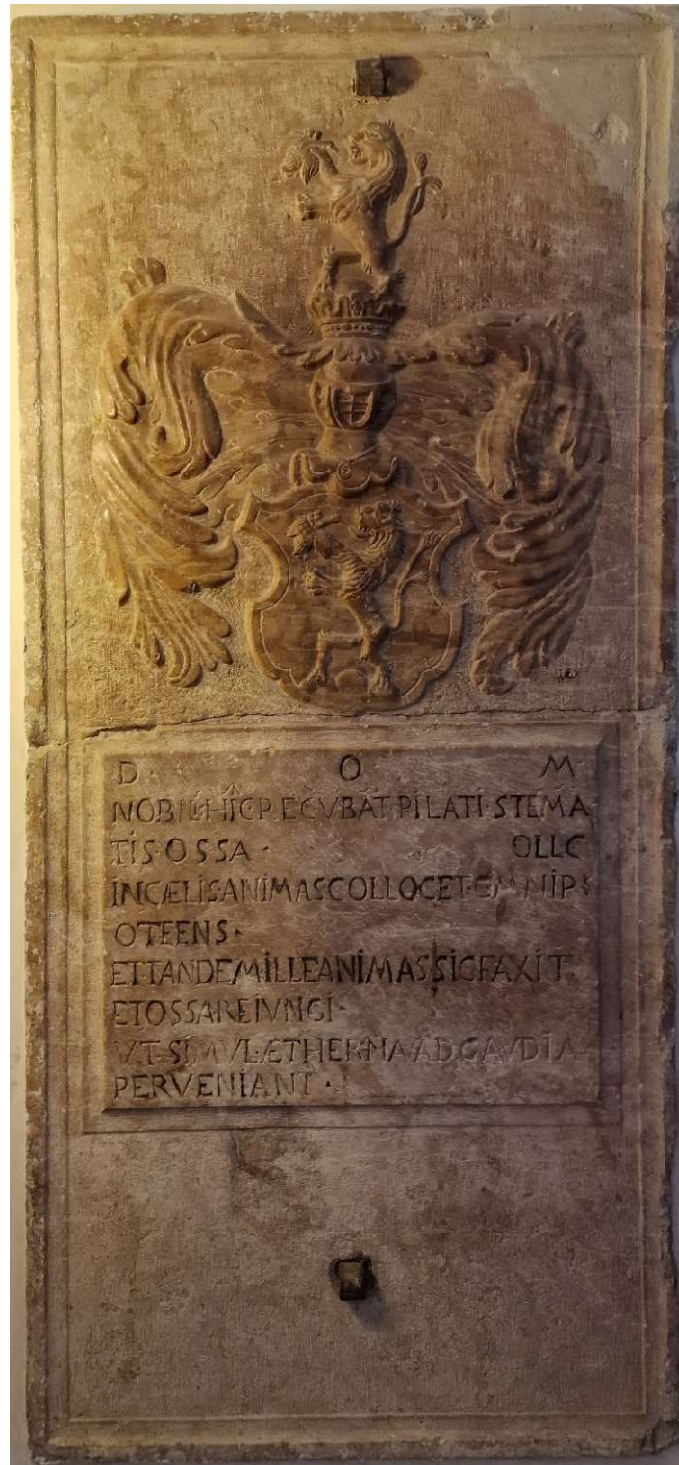 D· O M
NOBIL·HIC P ECVBAT·PILATI·STEMA
TIS·OSSA· OLLC
IN CÆLIS ANIMAS COLLOCET·OMNIP
OTEENS·
ET TANDE MILLE ANIMAS SIC FAXIT
ET OSSA REIVNGI·
VT SIMVL ÆTHERNA AD GAVDIA
PERVENIANT·